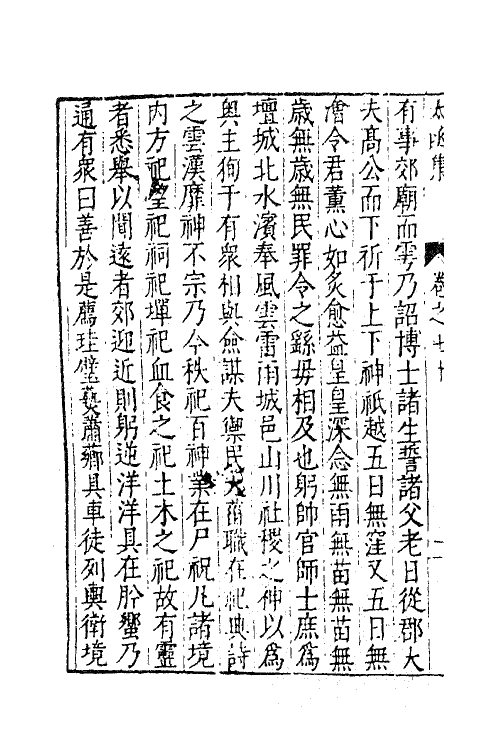 太函集 卷之七十
有事郊廟而雩乃詔博士諸生誓諸父老日從郡大
夫高公而下祈于上下神祇越五日無窪又五日無
澮令君薰心如炙愈益皇皇深念無雨無苗無苗無
歲無歲無民罪令之繇毋相及也躬帥官師士庶為
壇城北水濱奉風雲雷雨城邑山川社稷之神以為
輿主徇于有衆相與僉謀夫禦民大菑職在祀典詩
之雲漢靡神不宗乃今秩祀百神業在尸祝凡諸境
内方祀望祀祠祀墠祀血食之祀土木之祀故有靈
者悉舉以聞遠者郊迎近則躬逆洋洋具在肸蠁乃
通有衆曰善於是薦珪璧爇蕭薌具車徒列輿衛境